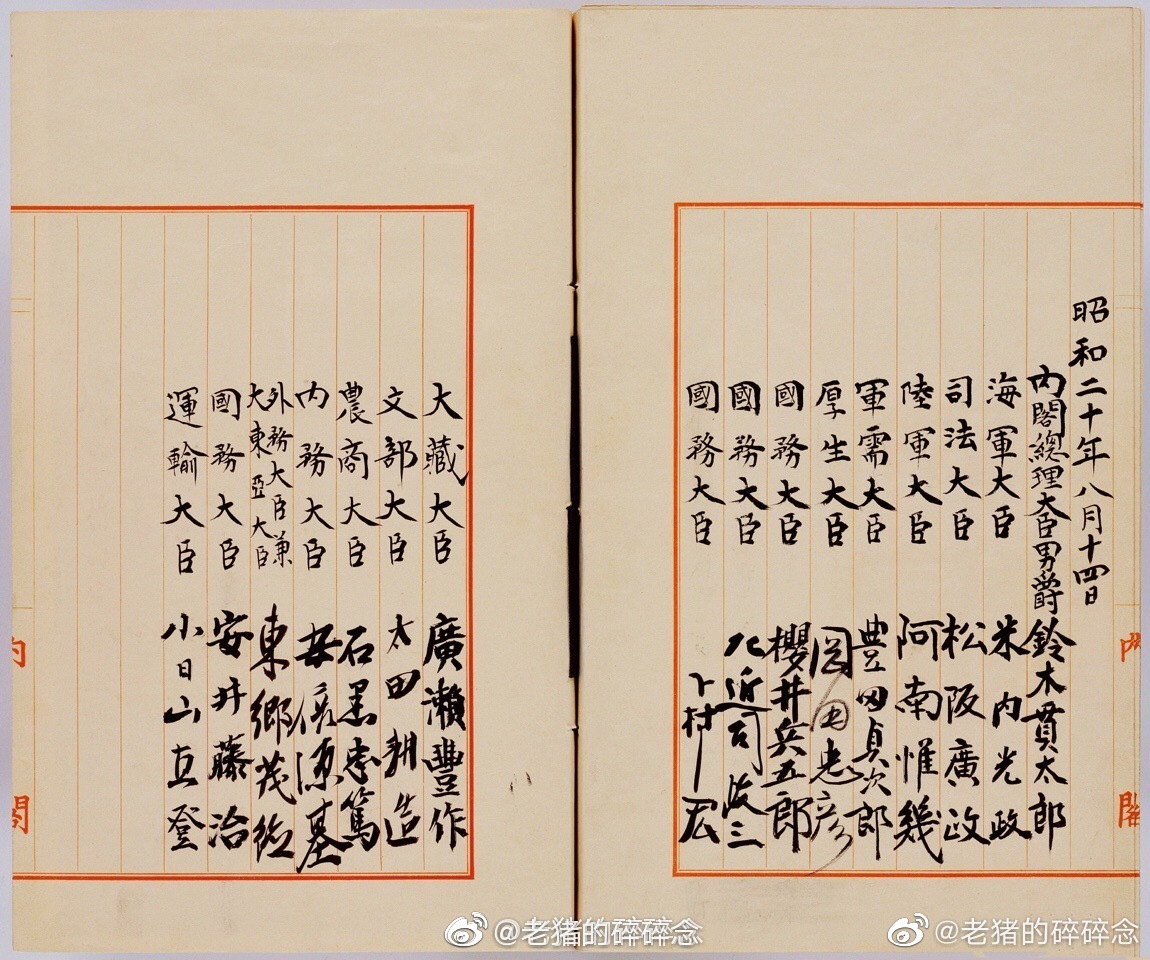 昭和二十年八月十四日
內閣總理大臣男爵 鈴木貫太郎
海軍大臣 米內光政
司法大臣 松阪廣政
陸軍大臣 阿南惟幾
軍需大臣 豊田貞次郎
厚生大臣 岡田忠彦
國務大臣 櫻井兵五郎
國務大臣 左近司政三
國務大臣 下村宏
大藏大臣 廣瀨豐作
文部大臣 太田耕造
農商大臣 石黑忠篤
內務大臣 安倍源基
外務大臣兼
大東亞大臣 東鄉茂德
國務大臣 安井藤治
運輸大臣 小日山直登
內閣
內閣
@老猪的碎碎念
@老猪的碎碎念